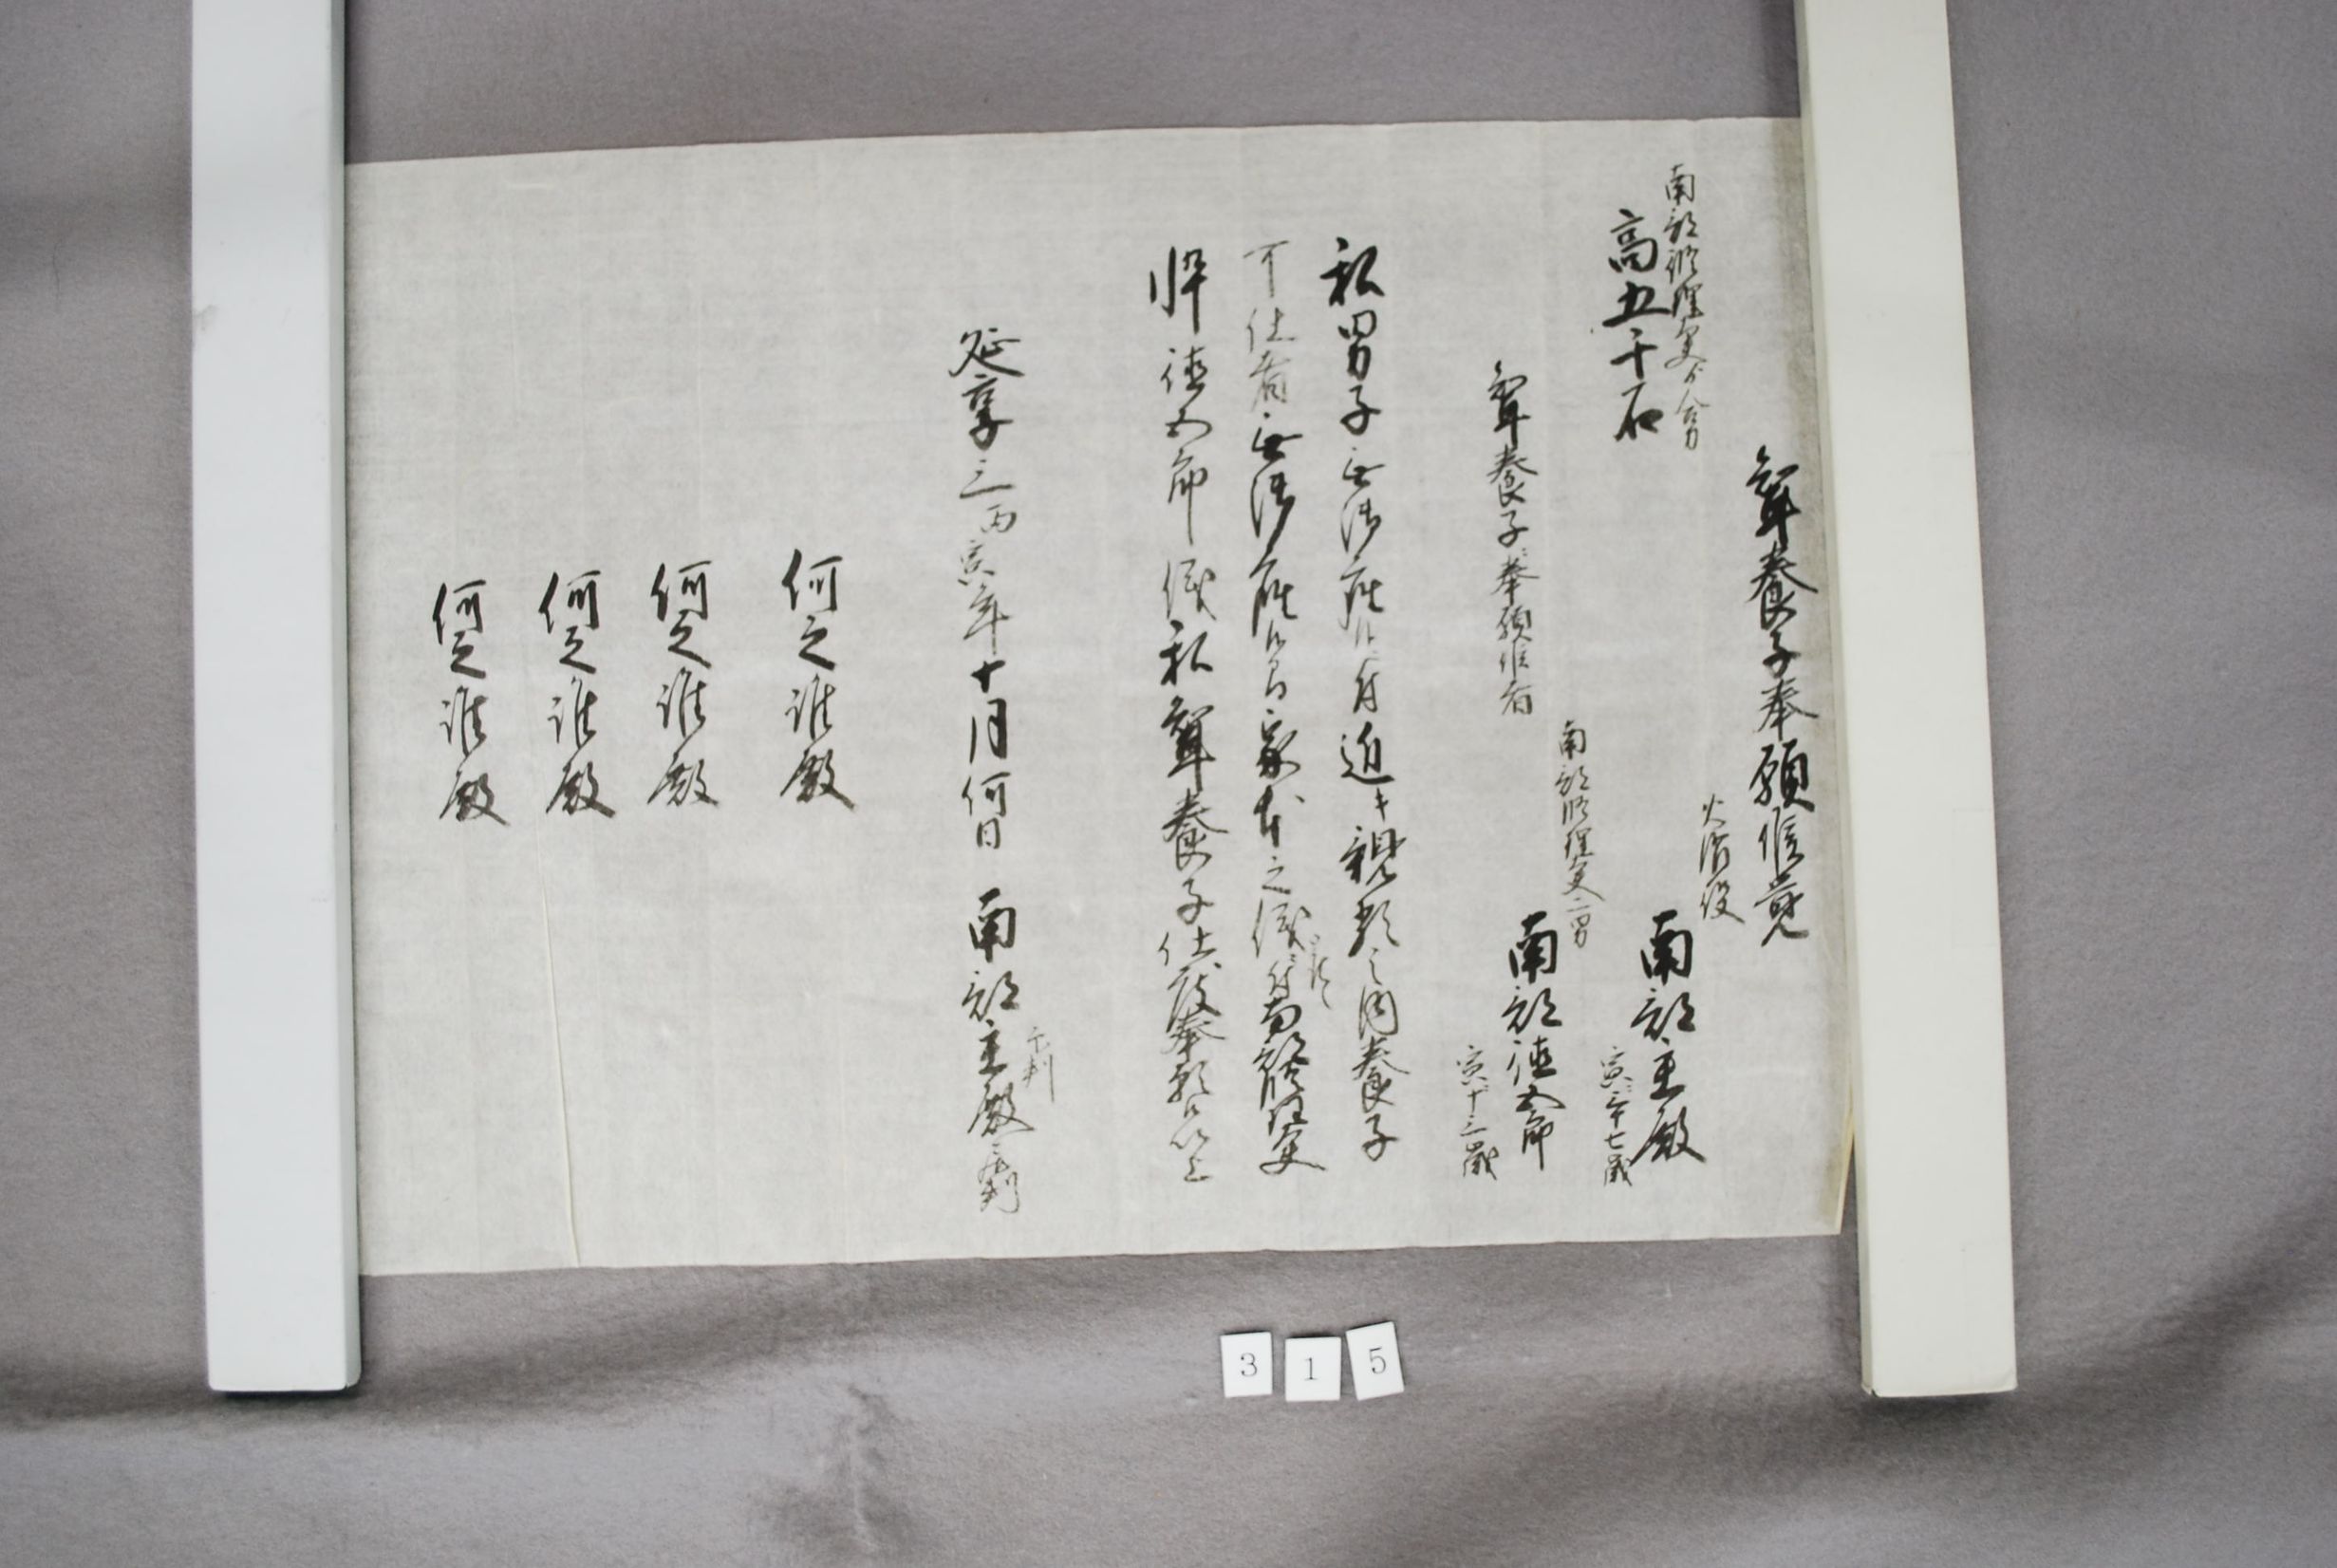 聟養子奉願候覚
火消役
南部修理亮分地
高五千石
南部主殿
寅三十七歳
聟養子奉願候者
南部修理亮二男
南部徳五郎
寅十三歳
私男子無御座候ニ付近キ親類之内養子
可仕者無御座候ニ付家本之儀ニ付南部修理亮
忰徳五郎儀私聟養子仕度奉願候以上
延享三丙寅年十月何日 南部主殿
何之誰殿
何之誰殿
何之誰殿
何之誰殿
3 1 5